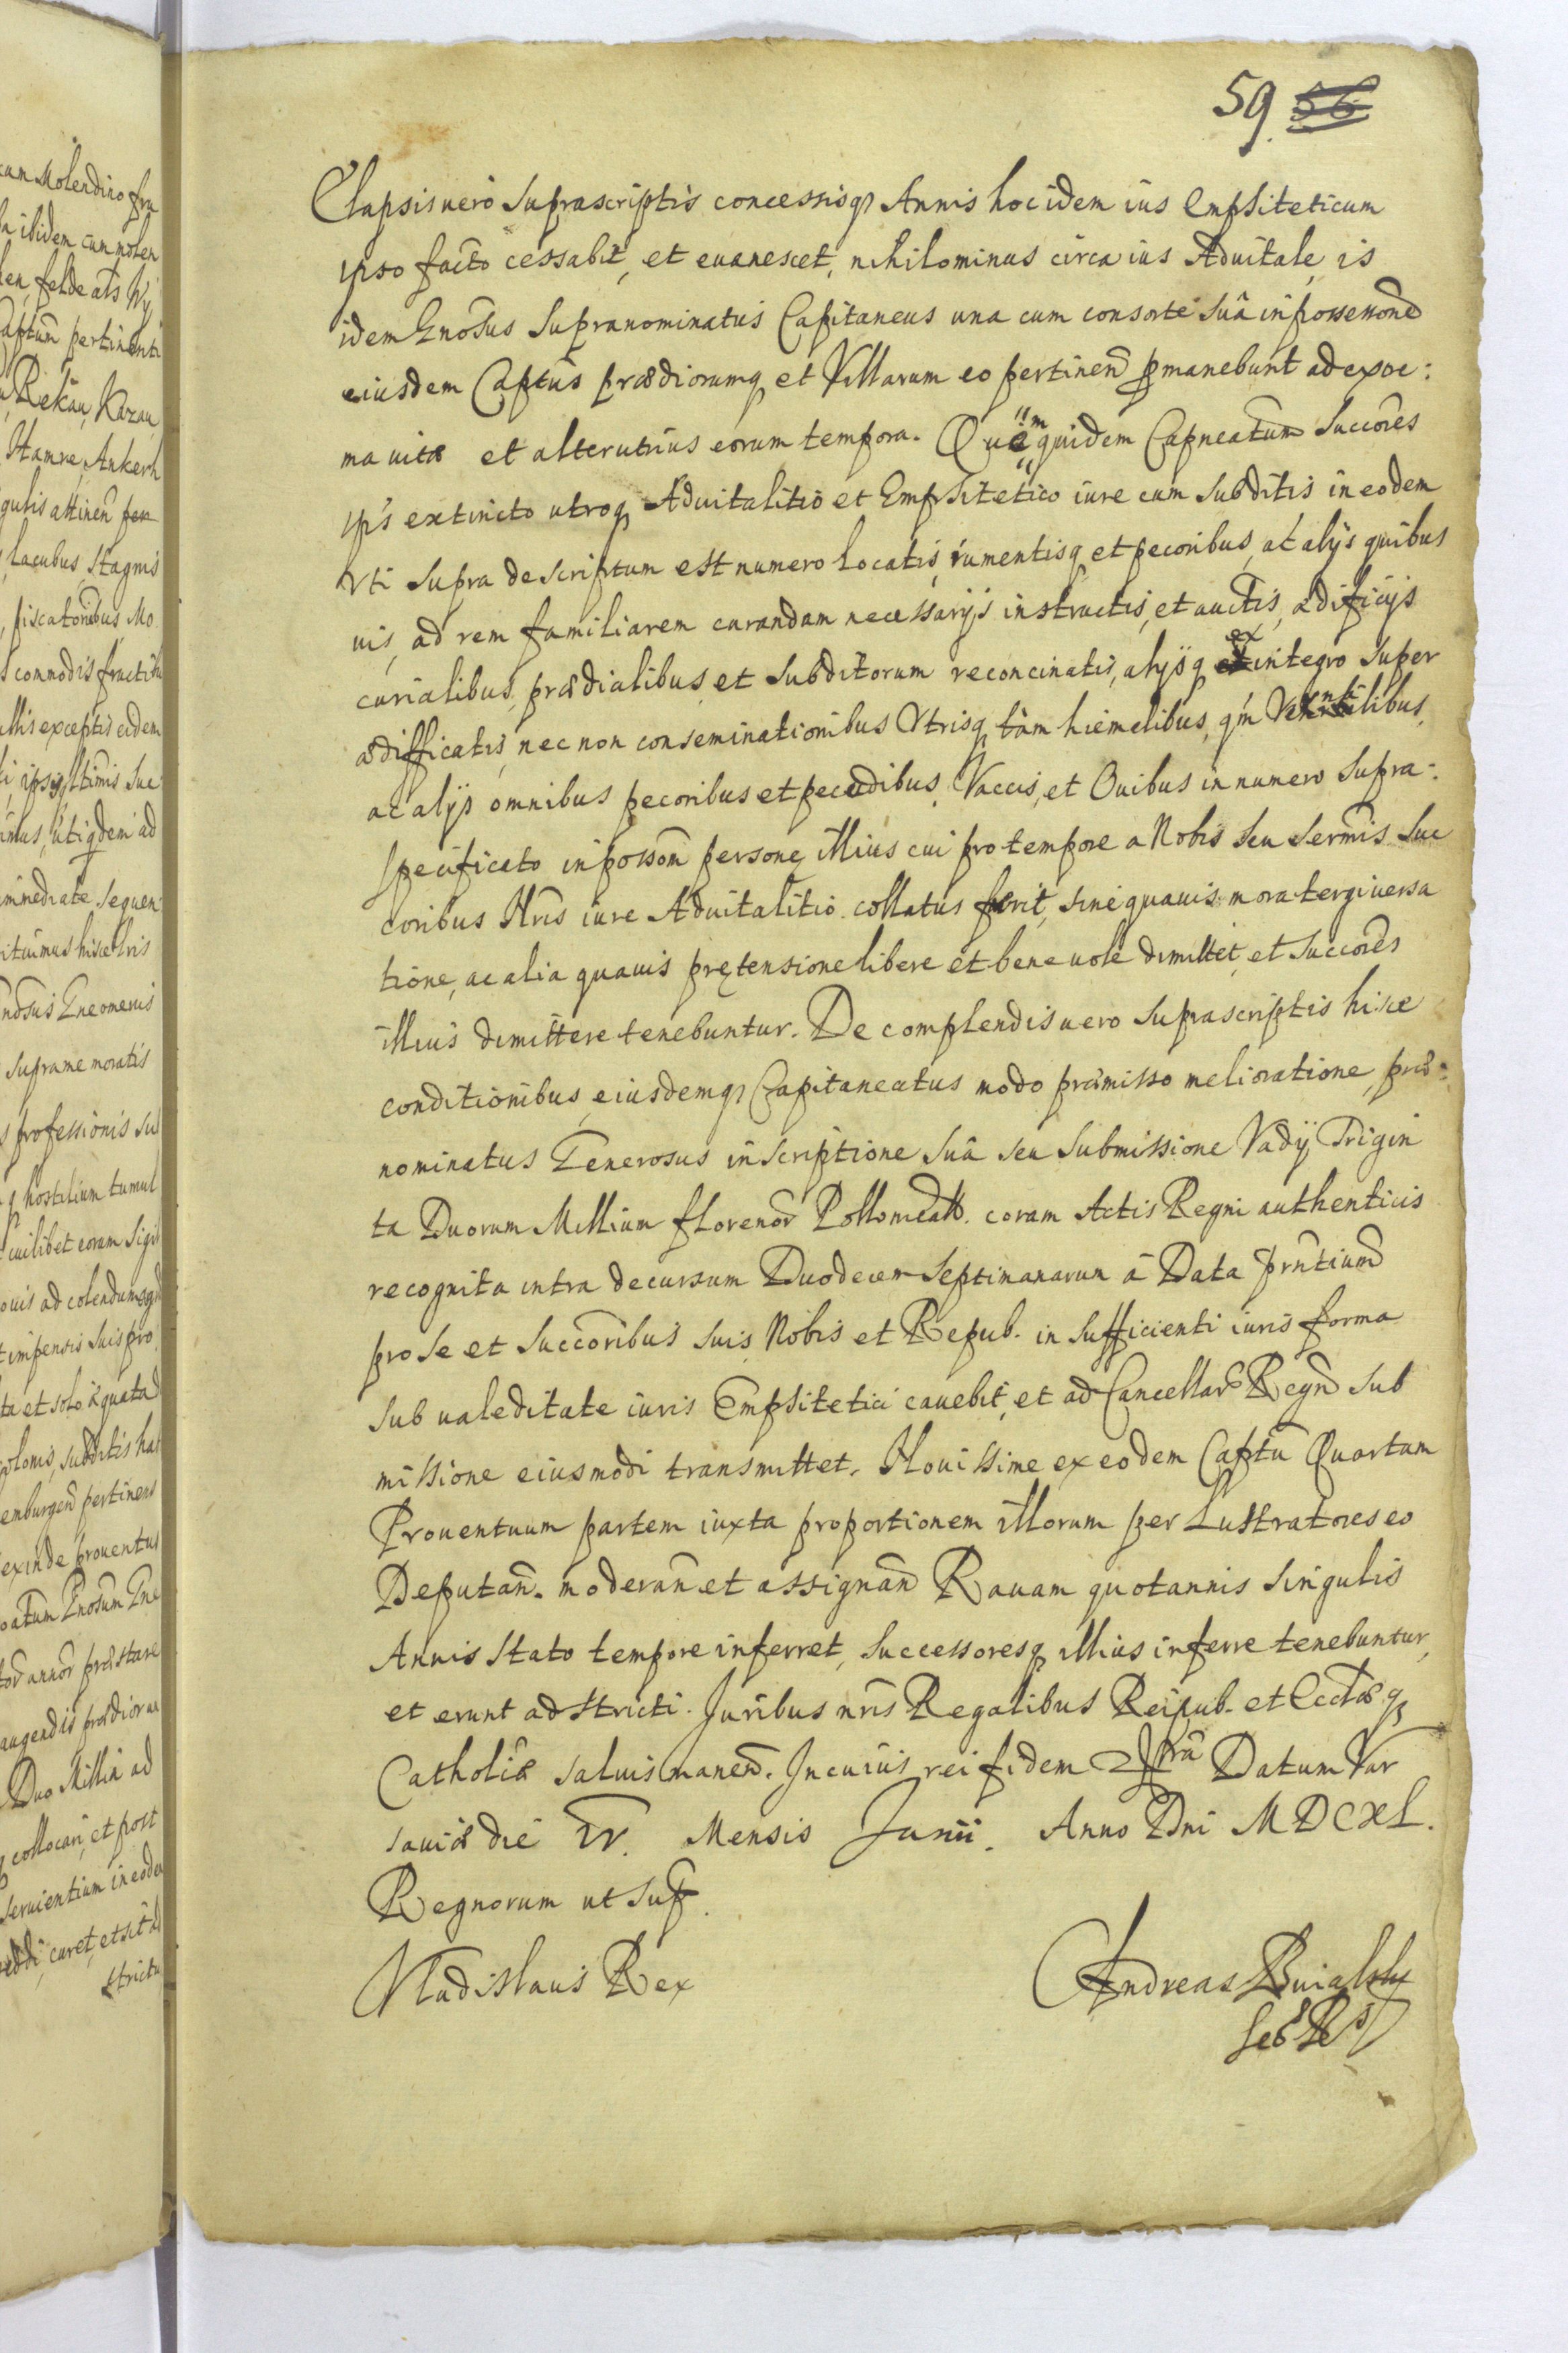 59. 56
Elapsis uero suprascriptis concessisq3 Annis hoc idem ius Enpsiteticum
ipso facto cessabit, et euanescet, nihilominus circa ius Aduitale, is
idem Gnosus Supranominatus Capitaneus una cum consorte suâ in possessione
eiusdem Captus prædiorumq et Villarum eo pertinen pmanebunt ad extre:
ma uitæ et alterutrius eorum tempora. Quem quidem Capneatum Succores
ips extincto utroq Aduitalitio et Empsitetico iure cum subditis in eodem
Vti supra descriptum est numero locatis, iumentisq et pecoribus, at alijs quibus
uis, ad rem familiarem curandam necessarijs instructis, et auctis, ædificijs
curialibus, prædialibus, et subditorum reconcinatis, alijsq ex integro super
ædifficatis, nec non conseminationibus Vtrisq tàm hiemalibus, qm
ac alijs omnibus pecoribus et pecudibus, Vaccis, et Ouibus in numero supra-:
specificato in possom persone illius cui pro tempore a Nobis seu Sermis Suc
coribus Nris iure Aduitalitio collatus fuerit, sine quauis mora tergiuersa
tione, ac alia quauis prętensione libere et beneuole dimittet, et Succores
illius dimittere tenebuntur. De complendis uero suprascriptis hisce
conditionibus, eiusdemq3 Capitaneatus modo præmisso melioratione, præ-:
nominatus Generosus inscriptione suâ seu submissione Vadij Trigin
ta Duorum Millium florenor Pollonicall. coram Actis Regni authenticis
recognita intra decursum Duodecem Septimanarum à Data pntium
pro se et Succoribus suis, Nobis et Repub. in sufficienti iuris forma
sub ualeditate iuris Empsitetici cauebit, et ad Cancellar Regn sub
missione eiusmodi transmittet. Nouissime ex eodem Captu Quartam
Prouentuum partem iuxta proportionem illorum per Lustratores eo
Deputan. moderan et assignan Rauam quotannis singulis
Annis stato tempore inferret, successoresq illius inferre tenebuntur,
et erunt adstricti. Juribus nris Regalibus Reipub. et Ecctæ q3
Catholicæ saluis manen. In cuius rei fidem Datum Var
sauiæ die IV. Mensis Junii. Anno Dni MDCXL.
Regnorum ut sup.
Vladislaus Rex
Andreas
Secr
cum Molendino
ibidem cum molen
felde als Wy
Captum pertinenti
Rekau, Kazau,
Hamre, Ankerh
gulis attinen
lacubus, stagnis
piscatoribus Mo
commodis fructib
exceptis eidem
ipsis ltimis suc
utiqdem ad
immediate sequen
ituimus hisce lris
supramemoratis
professionis su
q hostilium tumul
cuilibet eorum sigil
ouis ad colendum
impensis suis pro
ta et solo æquata
colonis, subditis ha
emburgen pertinens
exinde prouentus
atum Gnosum Gne
annor præstare
augendis prædiorum
Duo Millia ad
collocari, et post
seruientium in eode
curet, et sit ad
stricta